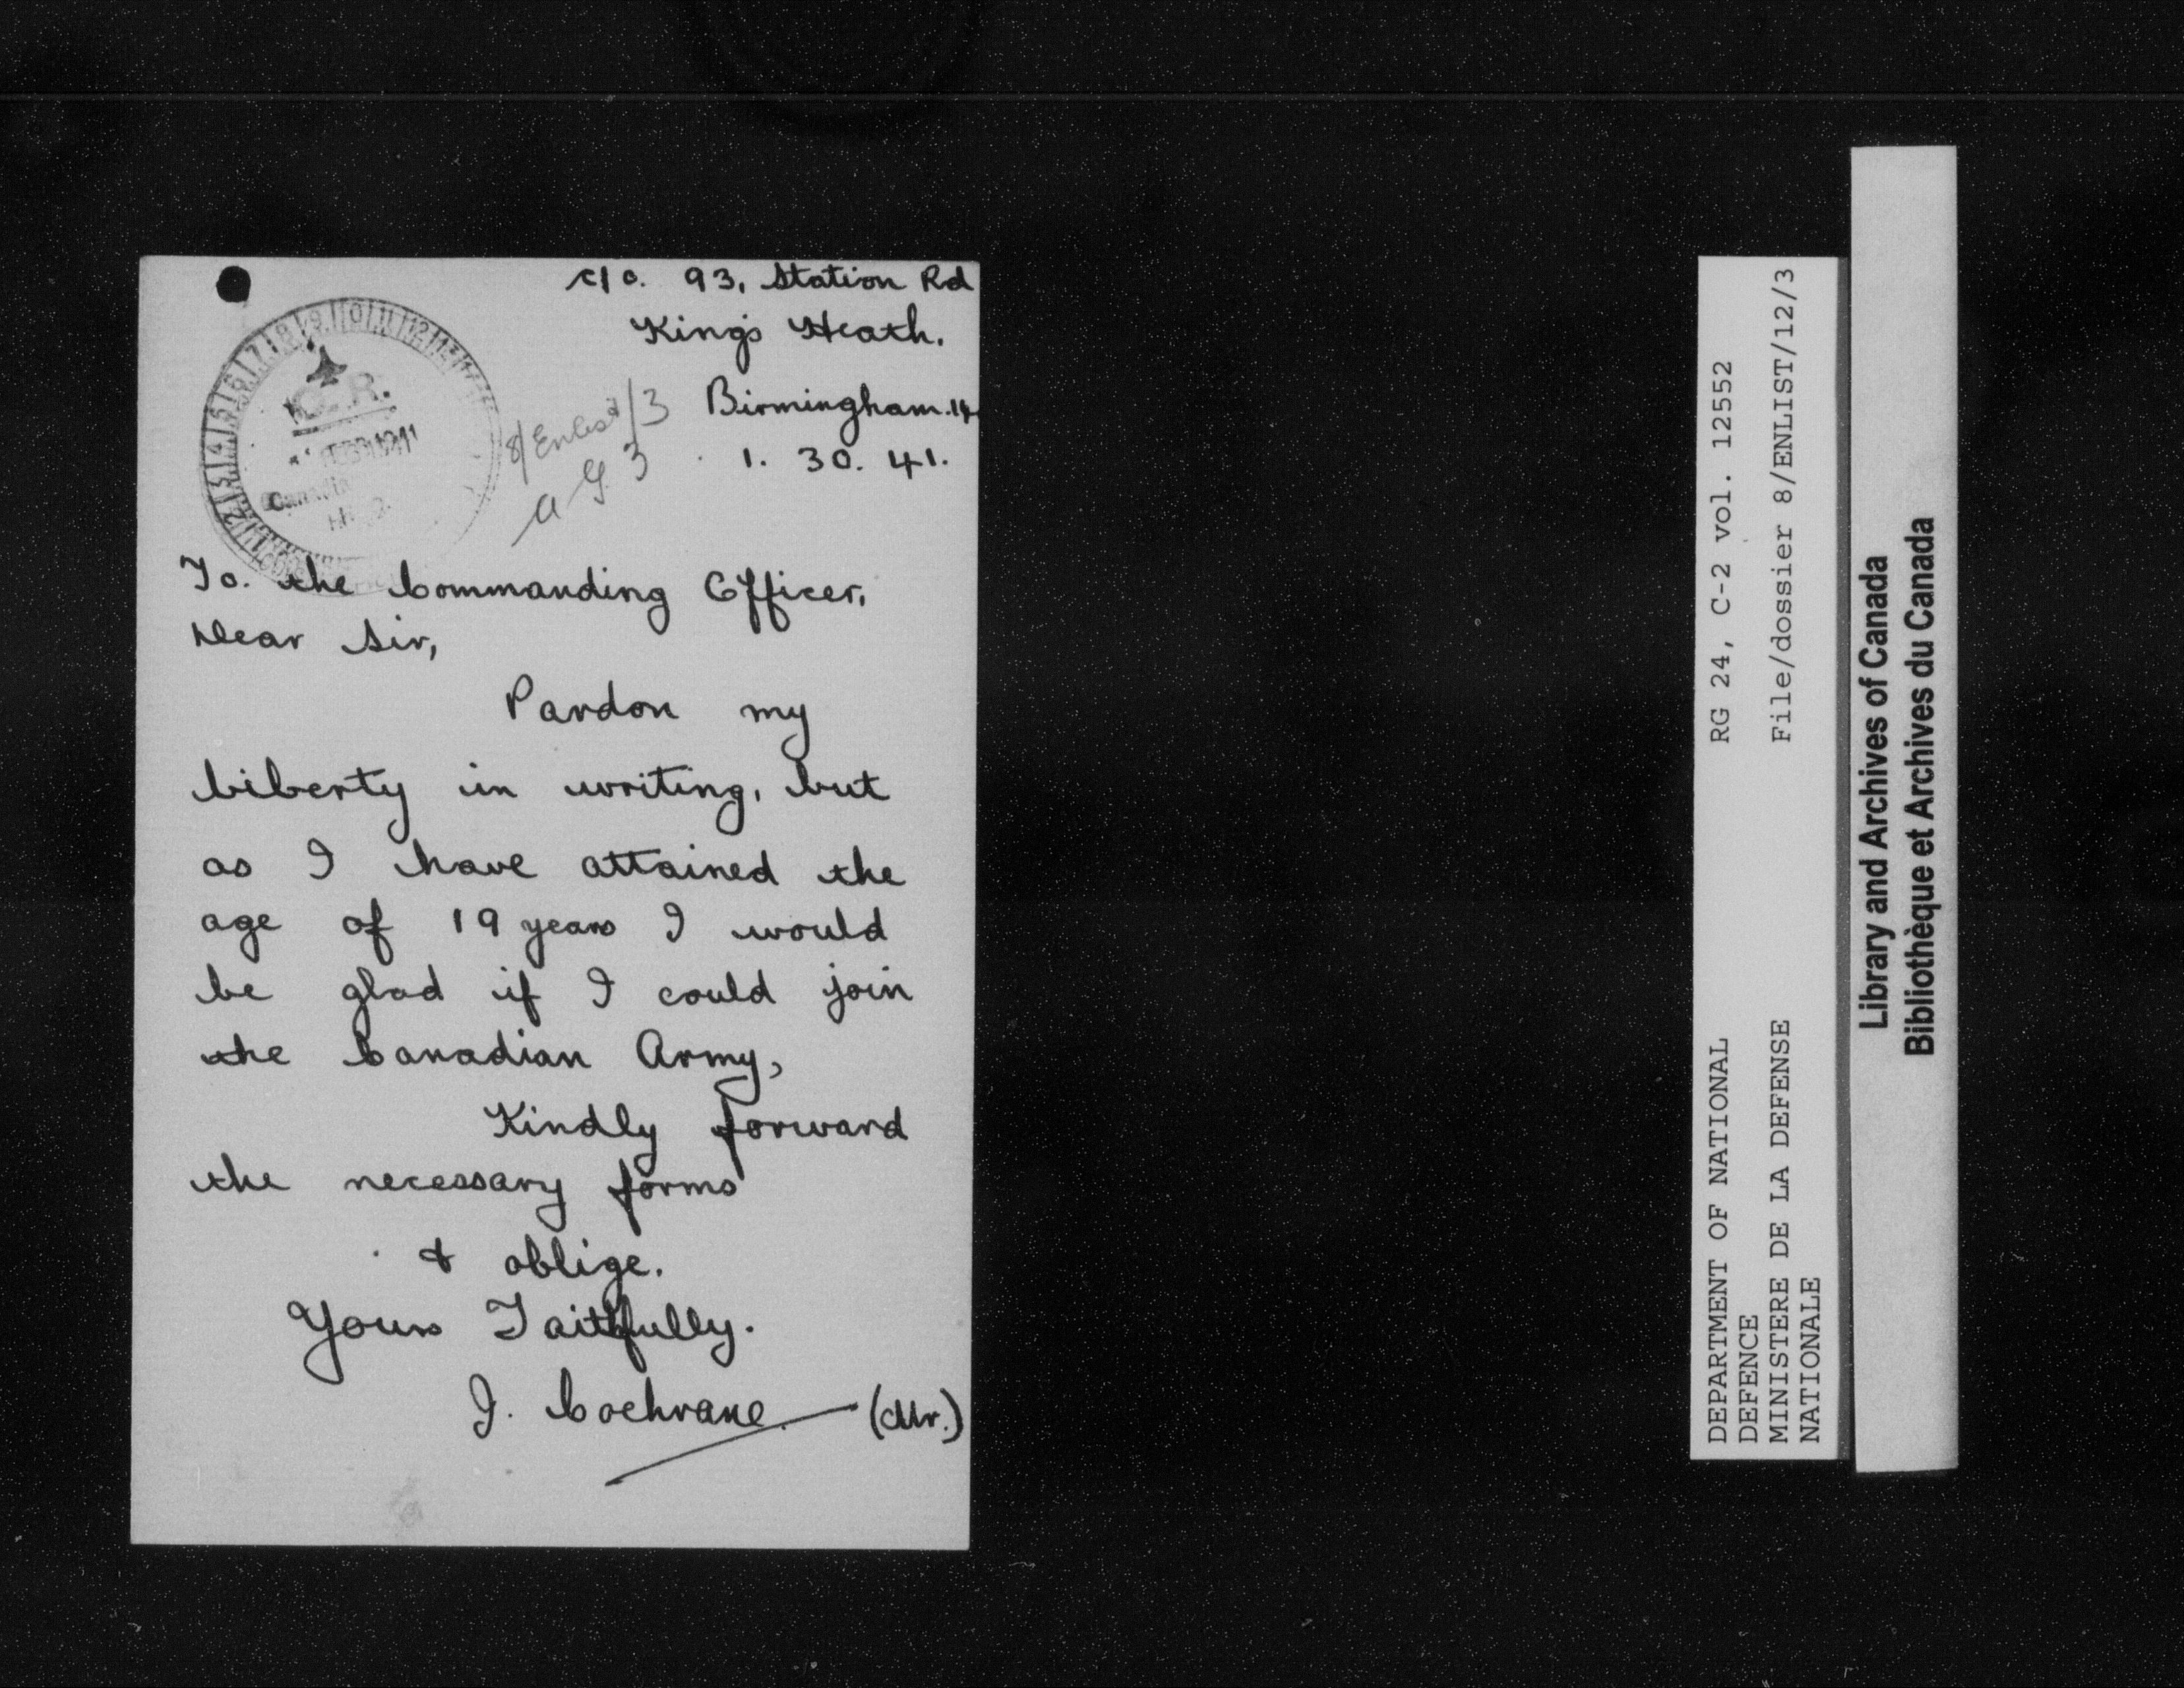 c/o. 93, Station Rd
King's Heath.
Birmingham. 14
1. 30. 41.
8/Enlist/3
AG 3
C.R.
FEB 1941
To. the Commanding Officer,
Dear Sir,
Pardon my
liberty in writing, but
as I have attained the
age of 19 years I would
be glad if I could join
the Canadian Army,
Kindly forward
the necessary forms
& oblige.
Yours Faithfully.
J. Cochrane. (Mr.)
RG 24, C-2 vol. 12552
File/dossier 8/ENLIST/12/3
DEPARTMENT OF NATIONAL
DEFENCE
MINISTERE DE LA DEFENSE
NATIONALE
Library and Archives of Canada
Bibliothèque et Archives du Canada